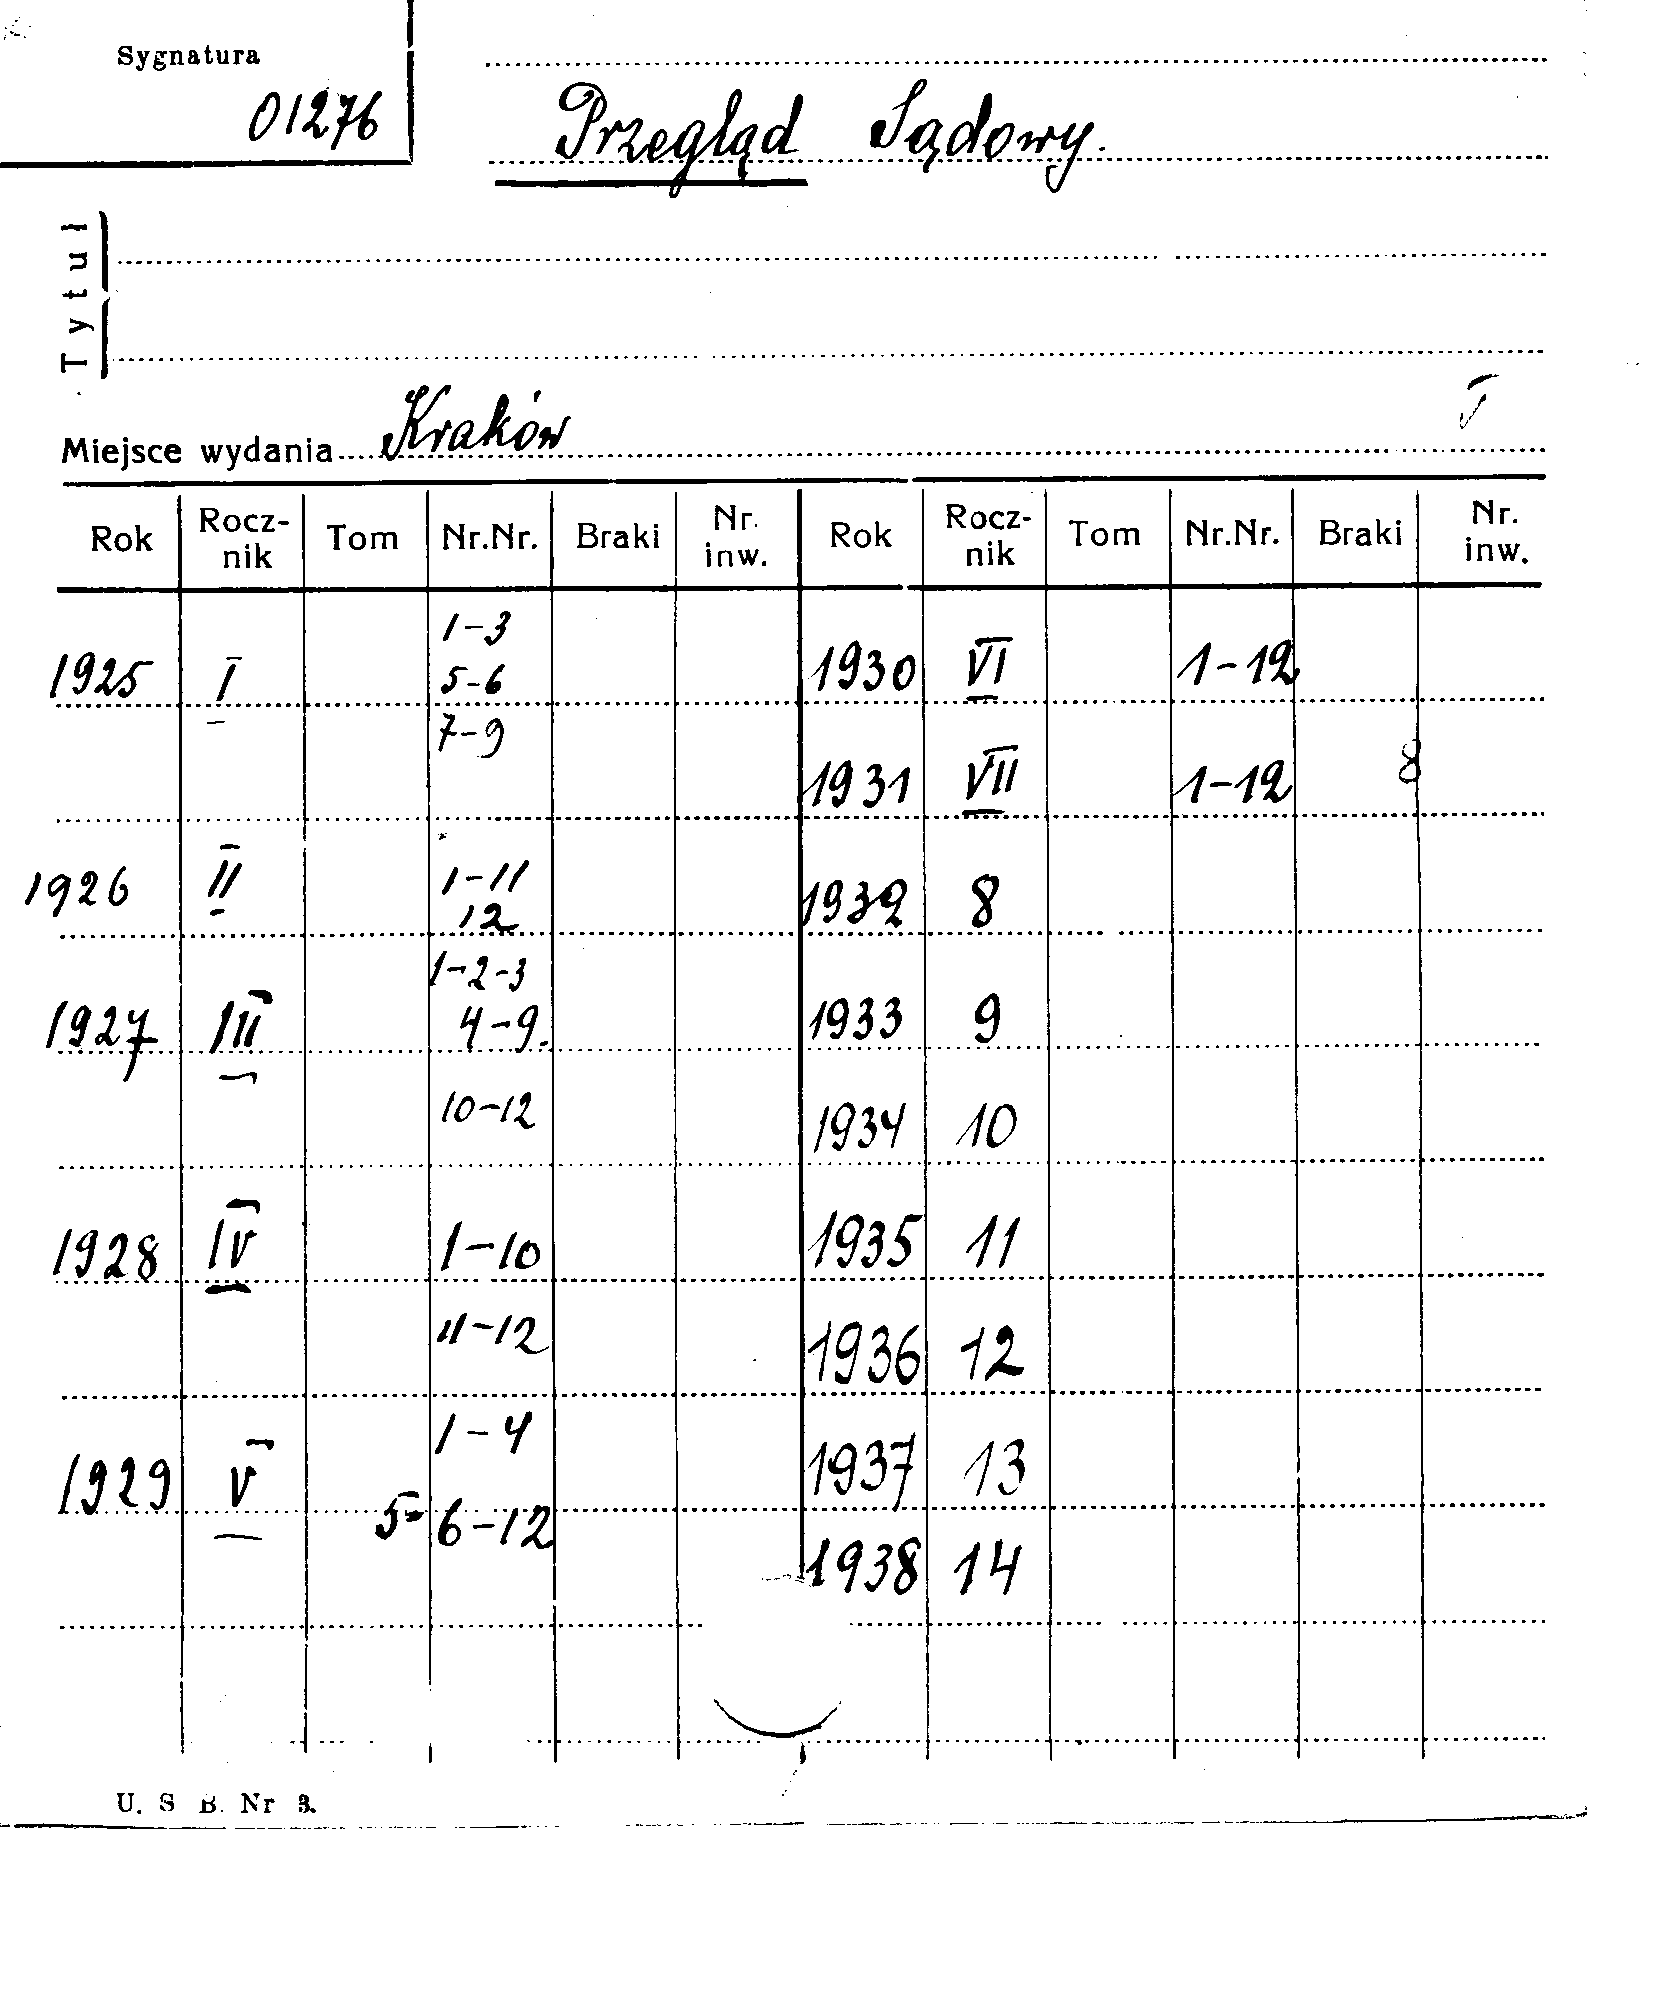 Sygnatura
01276
Przegląd Sądowy.
Tytuł
Miejsce wydania Kraków
V
Rok Rocz-nik Tom Nr.Nr. Braki Nr. inw. Rok Rocz-nik Tom Nr.Nr. Braki Nr. inw.
1-3
1925 I 5-6 1930 VI 1-12
7-9
1931 VII 1-12 8
1926 II 1-11 1932 8
12
1-2-3
1927 III 4-9. 1933 9
10-12 1934 10
1928 IV 1-10 1935 11
11-12 1936 12
1-4
1929 V 1937 13
5- 6-12
1938 14
U. S B. Nr 3.